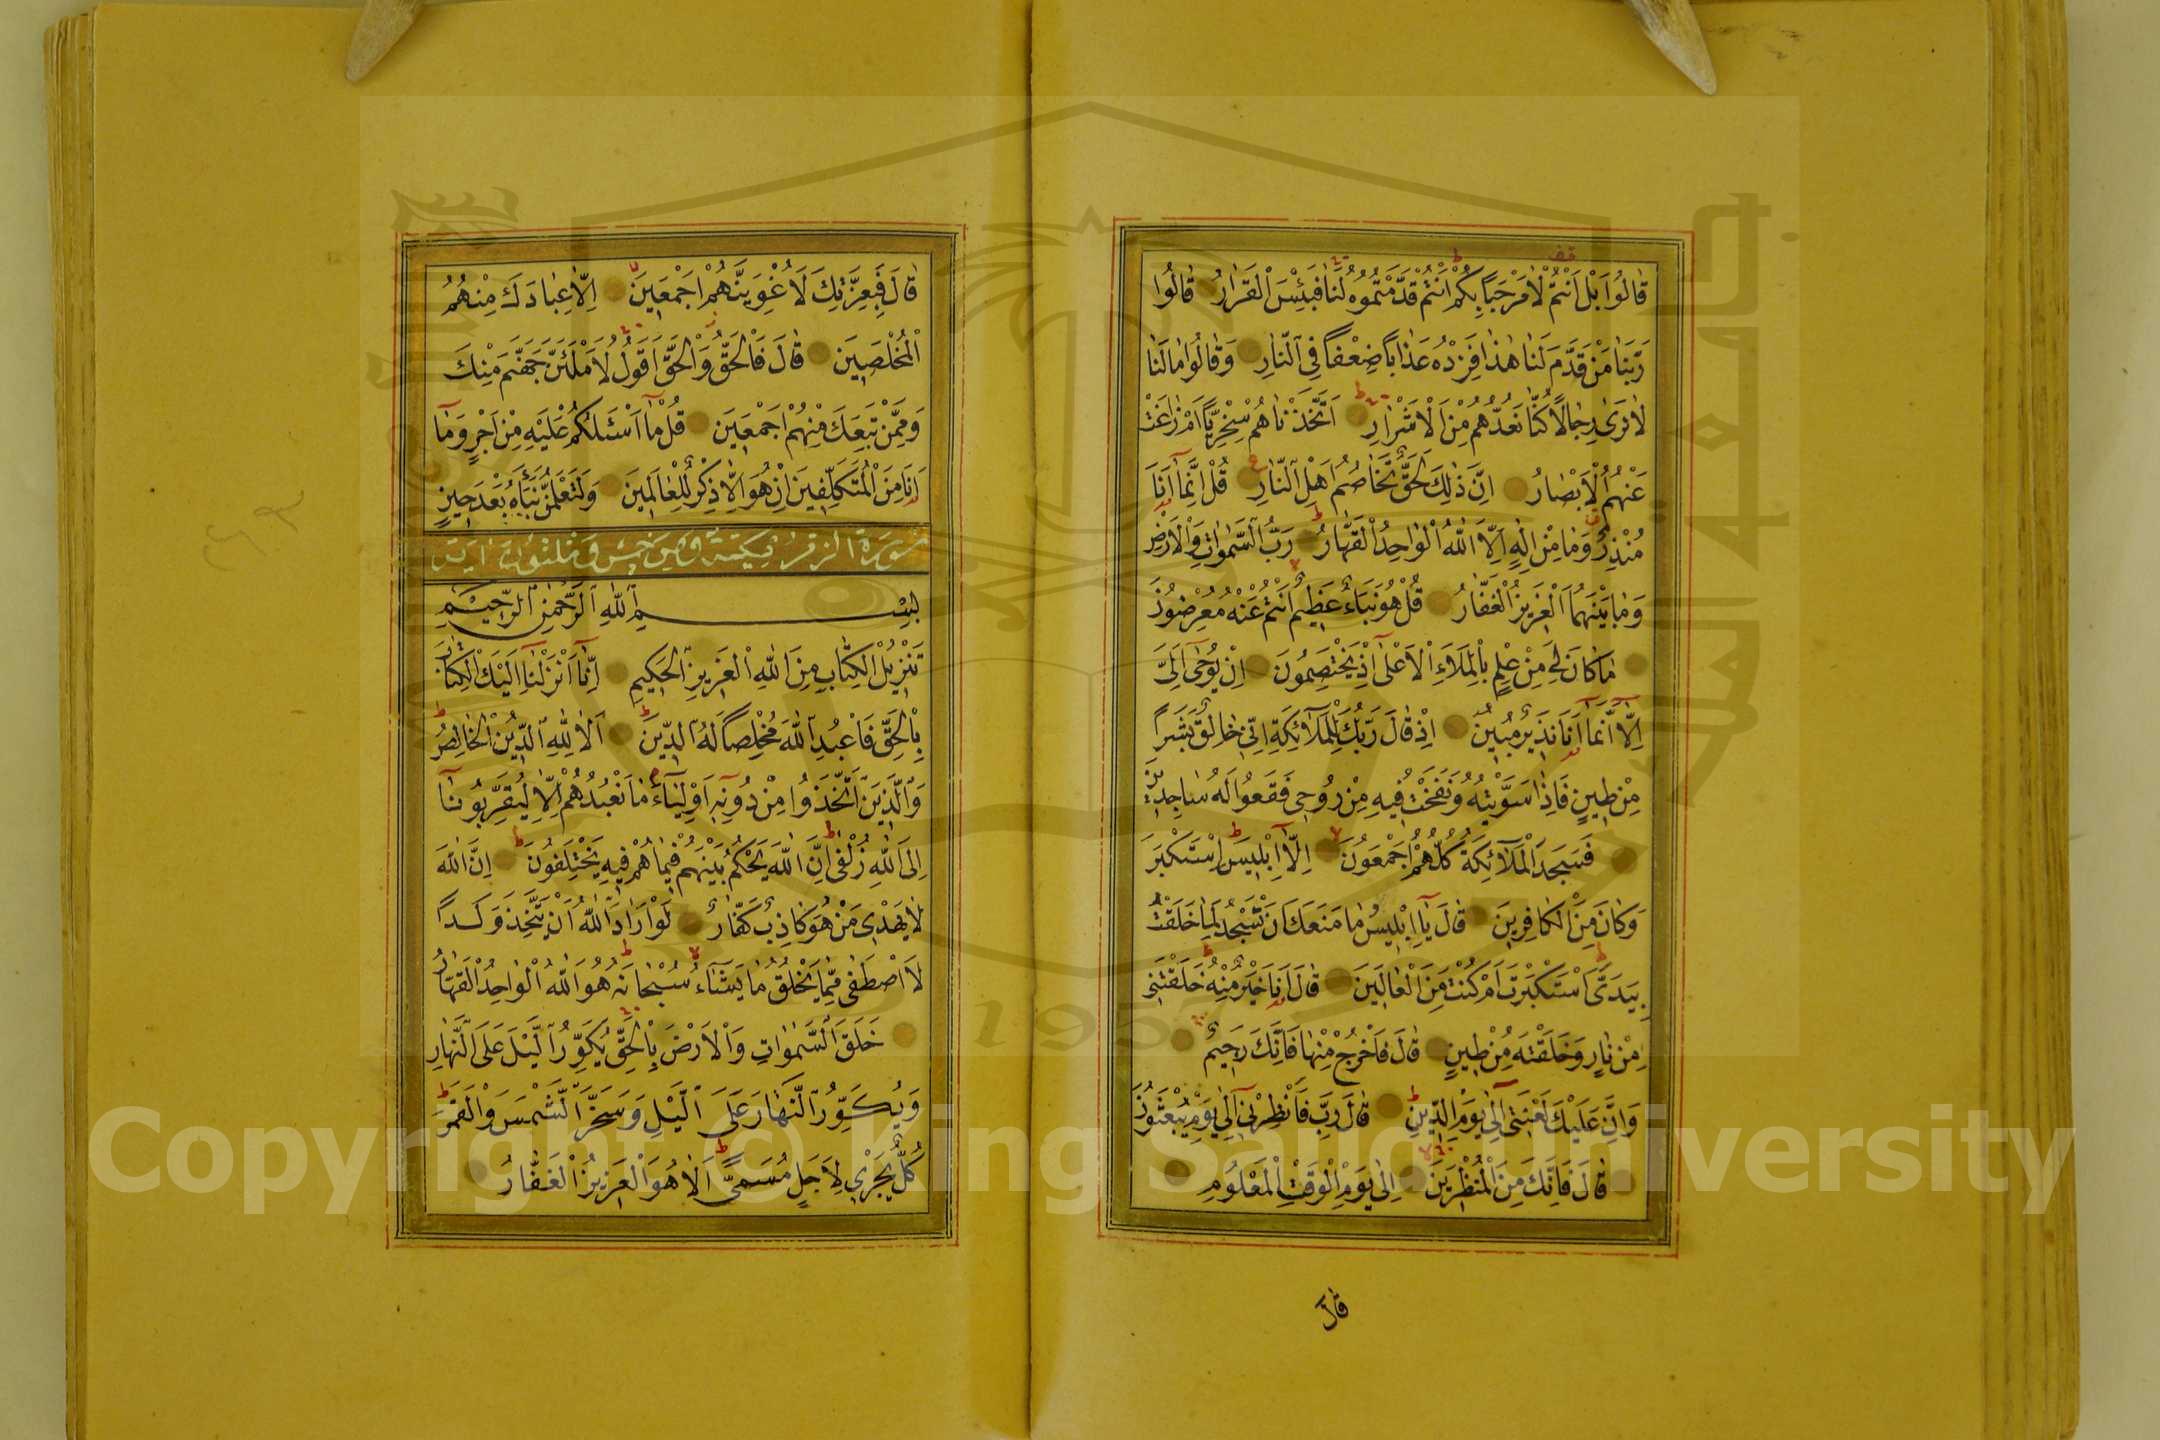 قَالُوا بَلْ اَنْتُمْ لَا مَرْحَبًا بِكُمْ اَنْتُمْ قَدَّمْتُمُوهُ لَنَا فَبِئْسَ الْقَرَارُ قَالُوا
رَبَّنَا مَنْ قَدَّمَ لَنَا هٰذَا فَزِدْهُ عَذَابًا ضِعْفًا فِي النَّارِ وَقَالُوا مَا لَنَا
لَا نَرٰى رِجَالًا كُنَّا نَعُدُّهُمْ مِنَ الْاَشْرَارِ اَتَّخَذْنَاهُمْ سِخْرِيًّا اَمْ زَاغَتْ
عَنْهُمُ الْاَبْصَارُ اِنَّ ذٰلِكَ لَحَقٌّ تَخَاصُمُ اَهْلِ النَّارِ قُلْ اِنَّمَا اَنَا
مُنْذِرٌ وَمَا مِنْ اِلٰهٍ اِلَّا اللّٰهُ الْوَاحِدُ الْقَهَّارُ رَبُّ السَّمٰوَاتِ وَالْاَرْضِ
وَمَا بَيْنَهُمَا الْعَزِيزُ الْغَفَّارُ قُلْ هُوَ نَبَاٌ عَظِيمٌ اَنْتُمْ عَنْهُ مُعْرِضُونَ
مَا كَانَ لِيَ مِنْ عِلْمٍ بِالْمَلَاِ الْاَعْلٰى اِذْ يَخْتَصِمُونَ اِنْ يُوحٰى اِلَيَّ
اِلَّا اَنَّمَا اَنَا نَذِيرٌ مُبِينٌ اِذْ قَالَ رَبُّكَ لِلْمَلٰٓائِكَةِ اِنِّي خَالِقٌ بَشَرًا
مِنْ طِينٍ فَاِذَا سَوَّيْتُهُ وَنَفَخْتُ فِيهِ مِنْ رُوحِي فَقَعُوا لَهُ سَاجِدِينَ
فَسَجَدَ الْمَلٰٓائِكَةُ كُلُّهُمْ اَجْمَعُونَ اِلَّا اِبْلِيسَ اِسْتَكْبَرَ
وَكَانَ مِنَ الْكَافِرِينَ قَالَ يَا اِبْلِيسُ مَا مَنَعَكَ اَنْ تَسْجُدَ لِمَا خَلَقْتُ
بِيَدَيَّ اَسْتَكْبَرْتَ اَمْ كُنْتَ مِنَ الْعَالِينَ قَالَ اَنَا خَيْرٌ مِنْهُ خَلَقْتَنِي
مِنْ نَارٍ وَخَلَقْتَهُ مِنْ طِينٍ قَالَ فَاخْرُجْ مِنْهَا فَاِنَّكَ رَجِيمٌ
وَاِنَّ عَلَيْكَ لَعْنَتِي اِلٰى يَوْمِ الدِّينِ قَالَ رَبِّ فَاَنْظِرْنِي اِلٰى يَوْمِ يُبْعَثُونَ
قَالَ فَاِنَّكَ مِنَ الْمُنْظَرِينَ اِلٰى يَوْمِ الْوَقْتِ الْمَعْلُومِ
قَالَ
قَالَ فَبِعِزَّتِكَ لَاُغْوِيَنَّهُمْ اَجْمَعِينَ اِلَّا عِبَادَكَ مِنْهُمُ
الْمُخْلَصِينَ قَالَ فَالْحَقُّ وَالْحَقَّ اَقُولُ لَاَمْلَئَنَّ جَهَنَّمَ مِنْكَ
وَمِمَّنْ تَبِعَكَ مِنْهُمْ اَجْمَعِينَ قُلْ مَا اَسْئَلُكُمْ عَلَيْهِ مِنْ اَجْرٍ وَمَا
اَنَا مِنَ الْمُتَكَلِّفِينَ اِنْ هُوَ اِلَّا ذِكْرٌ لِلْعَالَمِينَ وَلَتَعْلَمُنَّ نَبَاَهُ بَعْدَ حِينٍ
سورة الزمر مكية وهي خمس وسبعون اية
بِسْمِ اللّٰهِ الرَّحْمٰنِ الرَّحِيمِ
تَنْزِيلُ الْكِتَابِ مِنَ اللّٰهِ الْعَزِيزِ الْحَكِيمِ اِنَّا اَنْزَلْنَا اِلَيْكَ الْكِتَابَ
بِالْحَقِّ فَاعْبُدِ اللّٰهَ مُخْلِصًا لَهُ الدِّينَ اَلَا لِلّٰهِ الدِّينُ الْخَالِصُ
وَالَّذِينَ اتَّخَذُوا مِنْ دُونِهِ اَوْلِيَاءَ مَا نَعْبُدُهُمْ اِلَّا لِيُقَرِّبُونَا
اِلَى اللّٰهِ زُلْفٰى اِنَّ اللّٰهَ يَحْكُمُ بَيْنَهُمْ فِيمَا هُمْ فِيهِ يَخْتَلِفُونَ اِنَّ اللّٰهَ
لَا يَهْدِي مَنْ هُوَ كَاذِبٌ كَفَّارٌ لَوْ اَرَادَ اللّٰهُ اَنْ يَتَّخِذَ وَلَدًا
لَاصْطَفٰى مِمَّا يَخْلُقُ مَا يَشَاءُ سُبْحَانَهُ هُوَ اللّٰهُ الْوَاحِدُ الْقَهَّارُ
خَلَقَ السَّمٰوَاتِ وَالْاَرْضَ بِالْحَقِّ يُكَوِّرُ الَّيْلَ عَلَى النَّهَارِ
وَيُكَوِّرُ النَّهَارَ عَلَى الَّيْلِ وَسَخَّرَ الشَّمْسَ وَالْقَمَرَ
كُلٌّ يَجْرِي لِاَجَلٍ مُسَمًّى اَلَا هُوَ الْعَزِيزُ الْغَفَّارُ
Copyright © King Saud University
1957